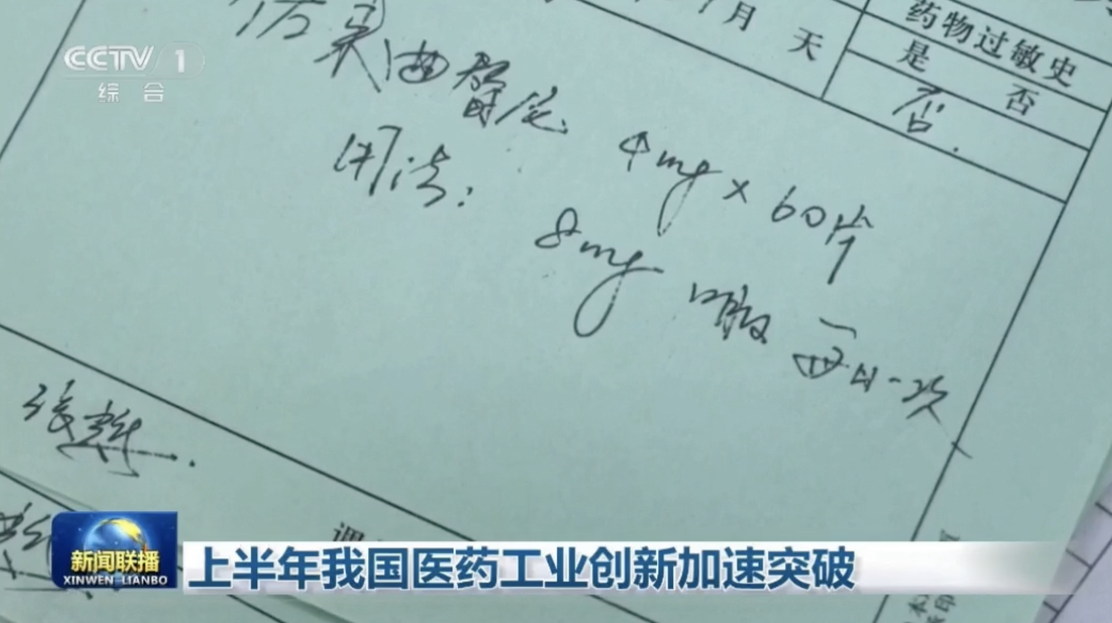 CCTV 1
综合
月 天
药物过敏史
是 否
否.
佐来曲替尼 4mg×60片
用法: 8mg 口服 每日一次
张
调
新闻联播
XINWEN LIANBO
上半年我国医药工业创新加速突破